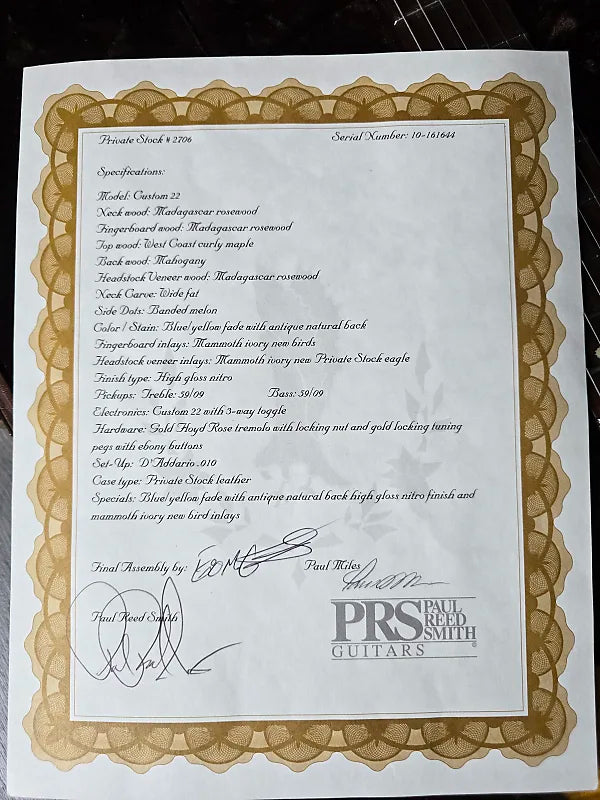 Private Stock # 2706 Serial Number: 10-161644
Specifications:
Model: Custom 22
Neck wood: Madagascar rosewood
Fingerboard wood: Madagascar rosewood
Top wood: West Coast curly maple
Back wood: Mahogany
Headstock Veneer wood: Madagascar rosewood
Neck Carve: Wide fat
Side Dots: Banded melon
Color / Stain: Blue/yellow fade with antique natural back
Fingerboard inlays: Mammoth ivory new birds
Headstock veneer inlays: Mammoth ivory new Private Stock eagle
Finish type: High gloss nitro
Pickups: Treble: 59/09 Bass: 59/09
Electronics: Custom 22 with 3-way toggle
Hardware: Gold Floyd Rose tremolo with locking nut and gold locking tuning
pegs with ebony buttons
Set-Up: D'Addario .010
Case type: Private Stock leather
Specials: Blue/yellow fade with antique natural back high gloss nitro finish and
mammoth ivory new bird inlays
Final Assembly by: Paul Miles
Paul Reed Smith
PRS PAUL REED SMITH
GUITARS